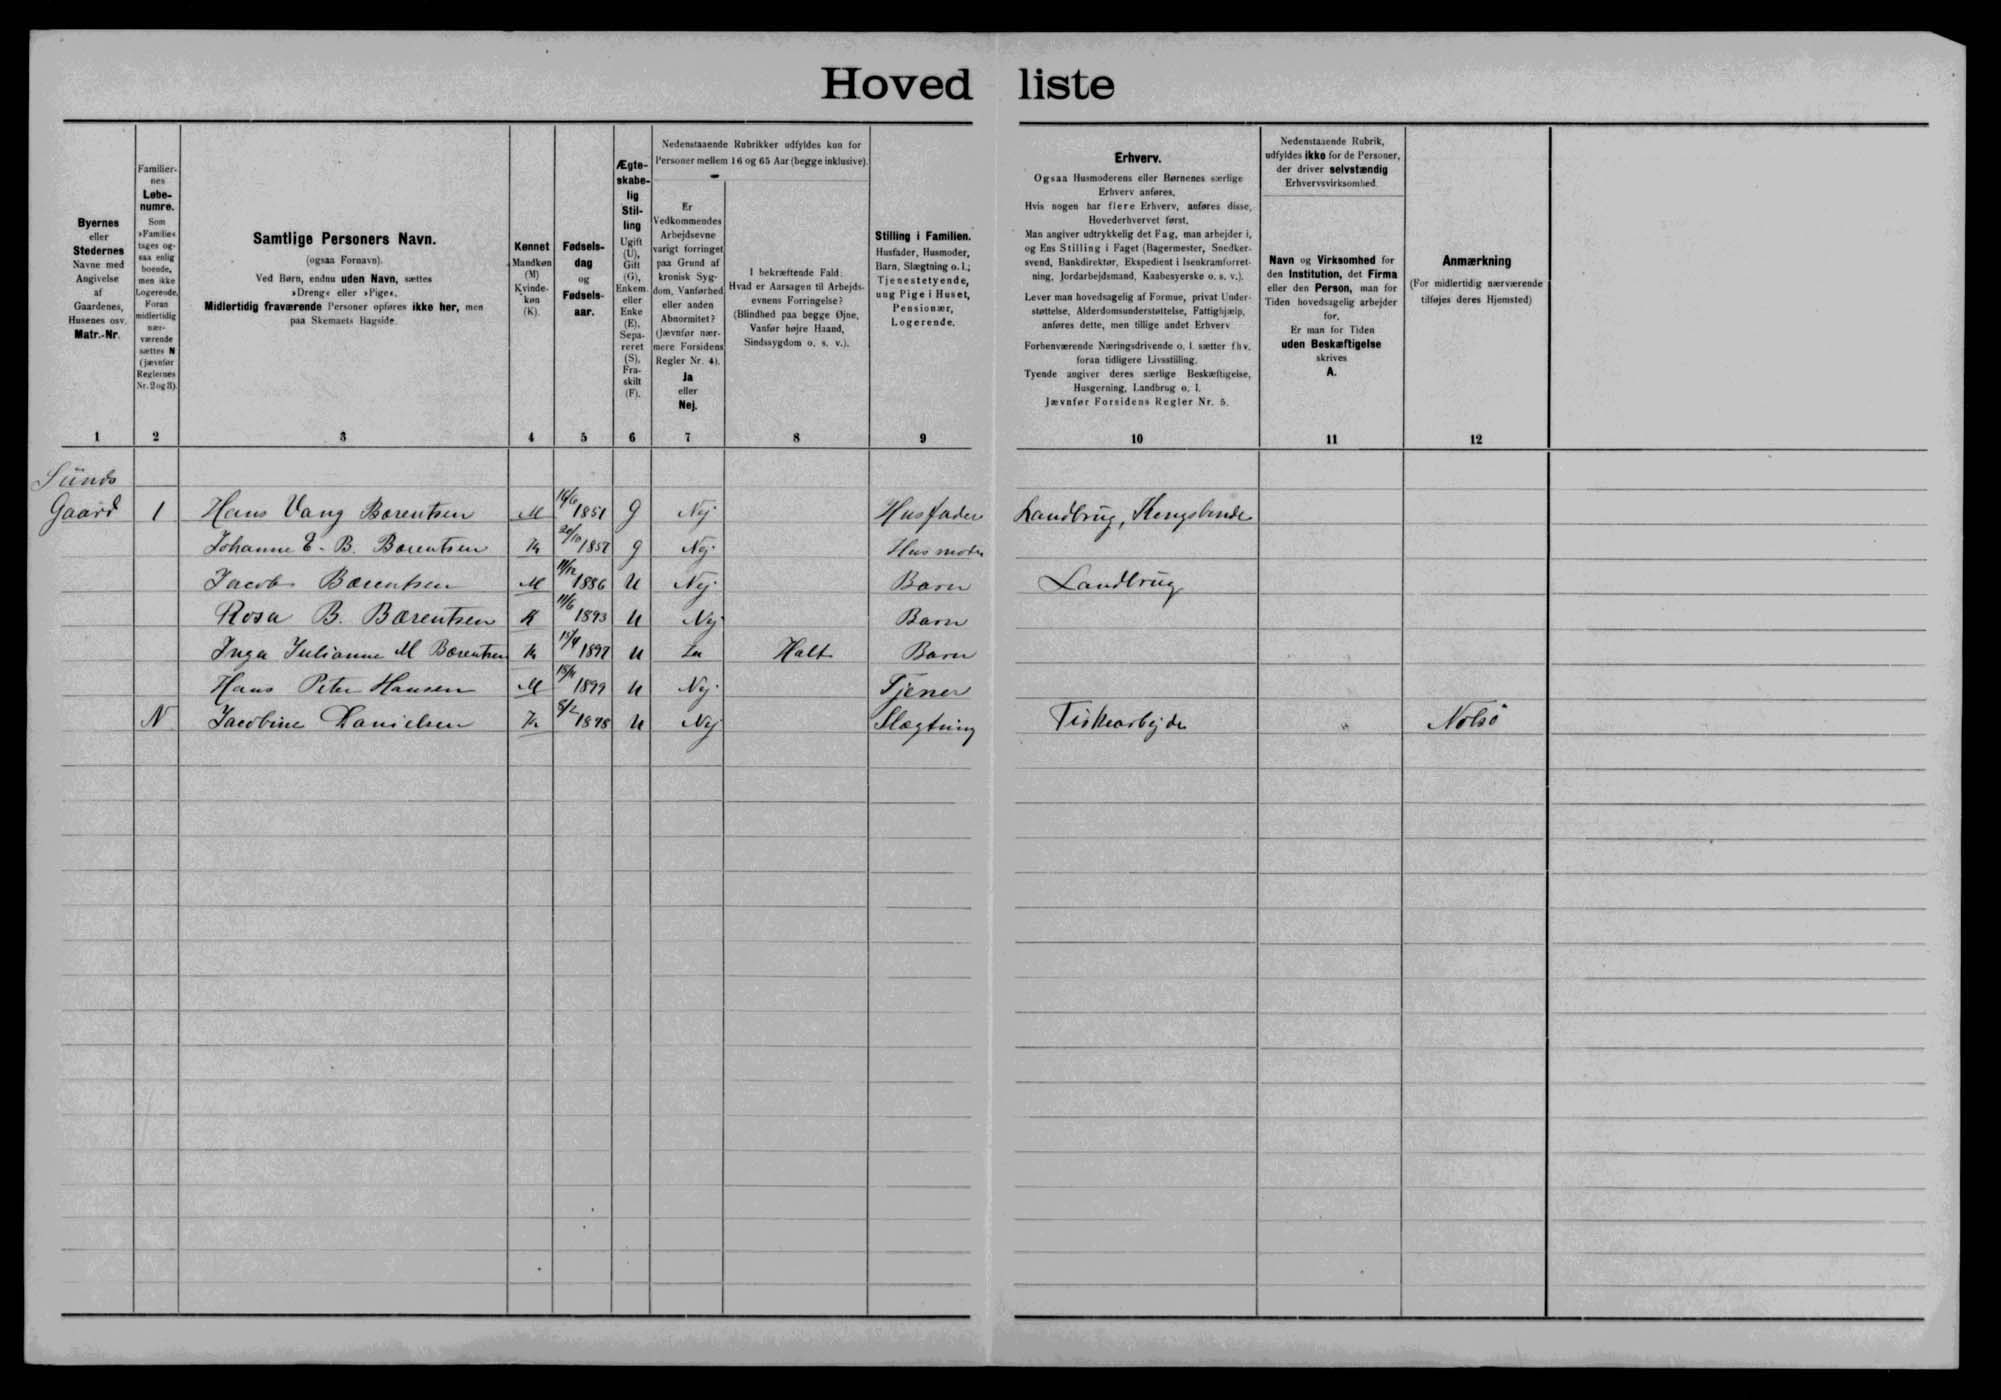 Hoved liste
Byernes
eller
Stedernes
Navne med
Angivelse
af
Gaardenes,
Husenes osv.
Matr.-Nr.
Familier-
nes
Løbe-
numre.
Som
»Familie«
tages og-
saa enlig
boende,
men ikke
Logerende.
Foran
midlertidig
nær-
værende
sættes N
(jævnfør
Reglernes
Nr. 2 og 3).
Samtlige Personers Navn.
(ogsaa Fornavn).
Ved Børn, endnu uden Navn, sættes
»Dreng« eller »Pige«.
Midlertidig fraværende Personer opføres ikke her, men
paa Skemaets Bagside.
Kønnet
Mandkøn
(M)
Kvinde-
køn
(K).
Fødsels-
dag
og
Fødsels-
aar.
Ægte-
skabe-
lig
Stil-
ling
Ugift
(U),
Gift
(G),
Enkem.
eller
Enke
(E),
Sepa-
reret
(S),
Fra-
skilt
(F).
Nedenstaaende Rubrikker udfyldes kun for
Personer mellem 16 og 65 Aar (begge inklusive).
Er
Vedkommendes
Arbejdsevne
varigt forringet
paa Grund af
kronisk Syg-
dom, Vanførhed
eller anden
Abnormitet?
(Jævnfør nær-
mere Forsidens
Regler Nr. 4).
Ja
eller
Nej.
I bekræftende Fald:
Hvad er Aarsagen til Arbejds-
evnens Forringelse?
(Blindhed paa begge Øjne,
Vanfør højre Haand,
Sindssygdom o. s. v.).
Stilling i Familien.
Husfader, Husmoder,
Barn, Slægtning o. l.;
Tjenestetyende,
ung Pige i Huset,
Pensionær,
Logerende.
Erhverv.
Ogsaa Husmoderens eller Børnenes særlige
Erhverv anføres.
Hvis nogen har flere Erhverv, anføres disse,
Hovederhvervet først.
Man angiver udtrykkelig det Fag, man arbejder i,
og Ens Stilling i Faget (Bagermester, Snedker-
svend, Bankdirektør, Ekspedient i Isenkramforret-
ning, Jordarbejdsmand, Kaabesyerske o. s. v.).
Lever man hovedsagelig af Formue, privat Under-
støttelse, Alderdomsunderstøttelse, Fattighjælp,
anføres dette, men tillige andet Erhverv
Forhenværende Næringsdrivende o. l. sætter fhv.
foran tidligere Livsstilling.
Tyende angiver deres særlige Beskæftigelse,
Husgerning, Landbrug o. l.
Jævnfør Forsidens Regler Nr. 5.
Nedenstaaende Rubrik,
udfyldes ikke for de Personer,
der driver selvstændig
Erhvervsvirksomhed.
Navn og Virksomhed for
den Institution, det Firma
eller den Person, man for
Tiden hovedsagelig arbejder
for.
Er man for Tiden
uden Beskæftigelse
skrives
A.
Anmærkning
(For midlertidig nærværende
tilføjes deres Hjemsted)
1 2 3 4 5 6 7 8 9 10 11 12
Sünds
Gaard 1 Hans Vang Bærentsen M 14/6 1851 G Nej Husfader Landbrug,
Johanne E. B. Bærentsen K 20/10 1857 G Nej Husmoder
Jacob Bærentsen M 11/12 1886 U Nej Barn Landbrug
Rosa B. Bærentsen K 11/6 1893 U Nej Barn
Inga Julianne M Bærentsen K 15/4 1897 U Ja Halt Barn
Hans Peter Hansen M 1899 U Nej Tjener
N Jacobine Danielsen K 8/2 1898 U Nej Slægtning Fiskearbejde Nolsö